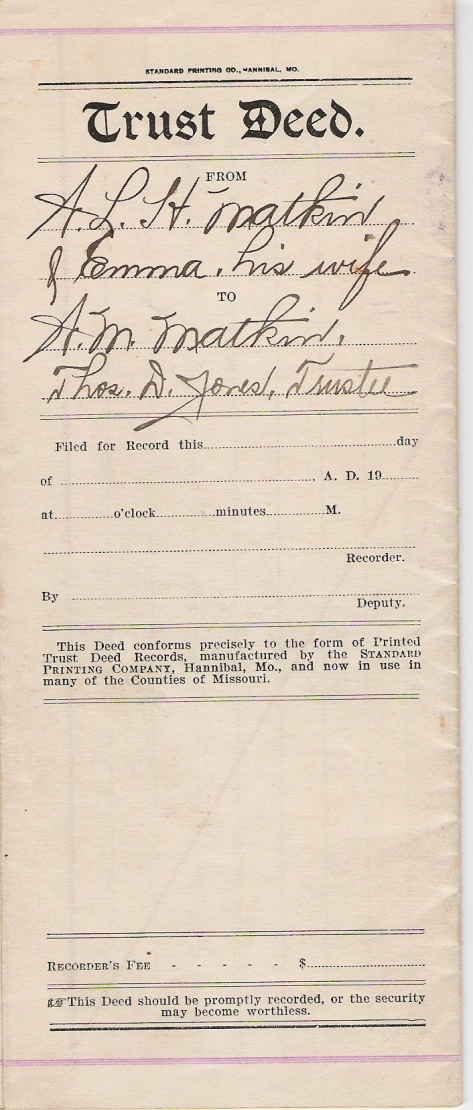 STANDARD PRINTING CO., HANNIBAL, MO.
Trust Deed.
FROM
A. L. H. Matkin
& Emma, his wife
TO
A. M. Matkin,
Thos. D. Jones, Trustee
Filed for Record this day
of A. D. 19
at o'clock minutes M.
Recorder.
By
Deputy.
This Deed conforms precisely to the form of Printed
Trust Deed Records, manufactured by the STANDARD
PRINTING COMPANY, Hannibal, Mo., and now in use in
many of the Counties of Missouri.
RECORDER'S FEE - - - - - $
This Deed should be promptly recorded, or the security
may become worthless.